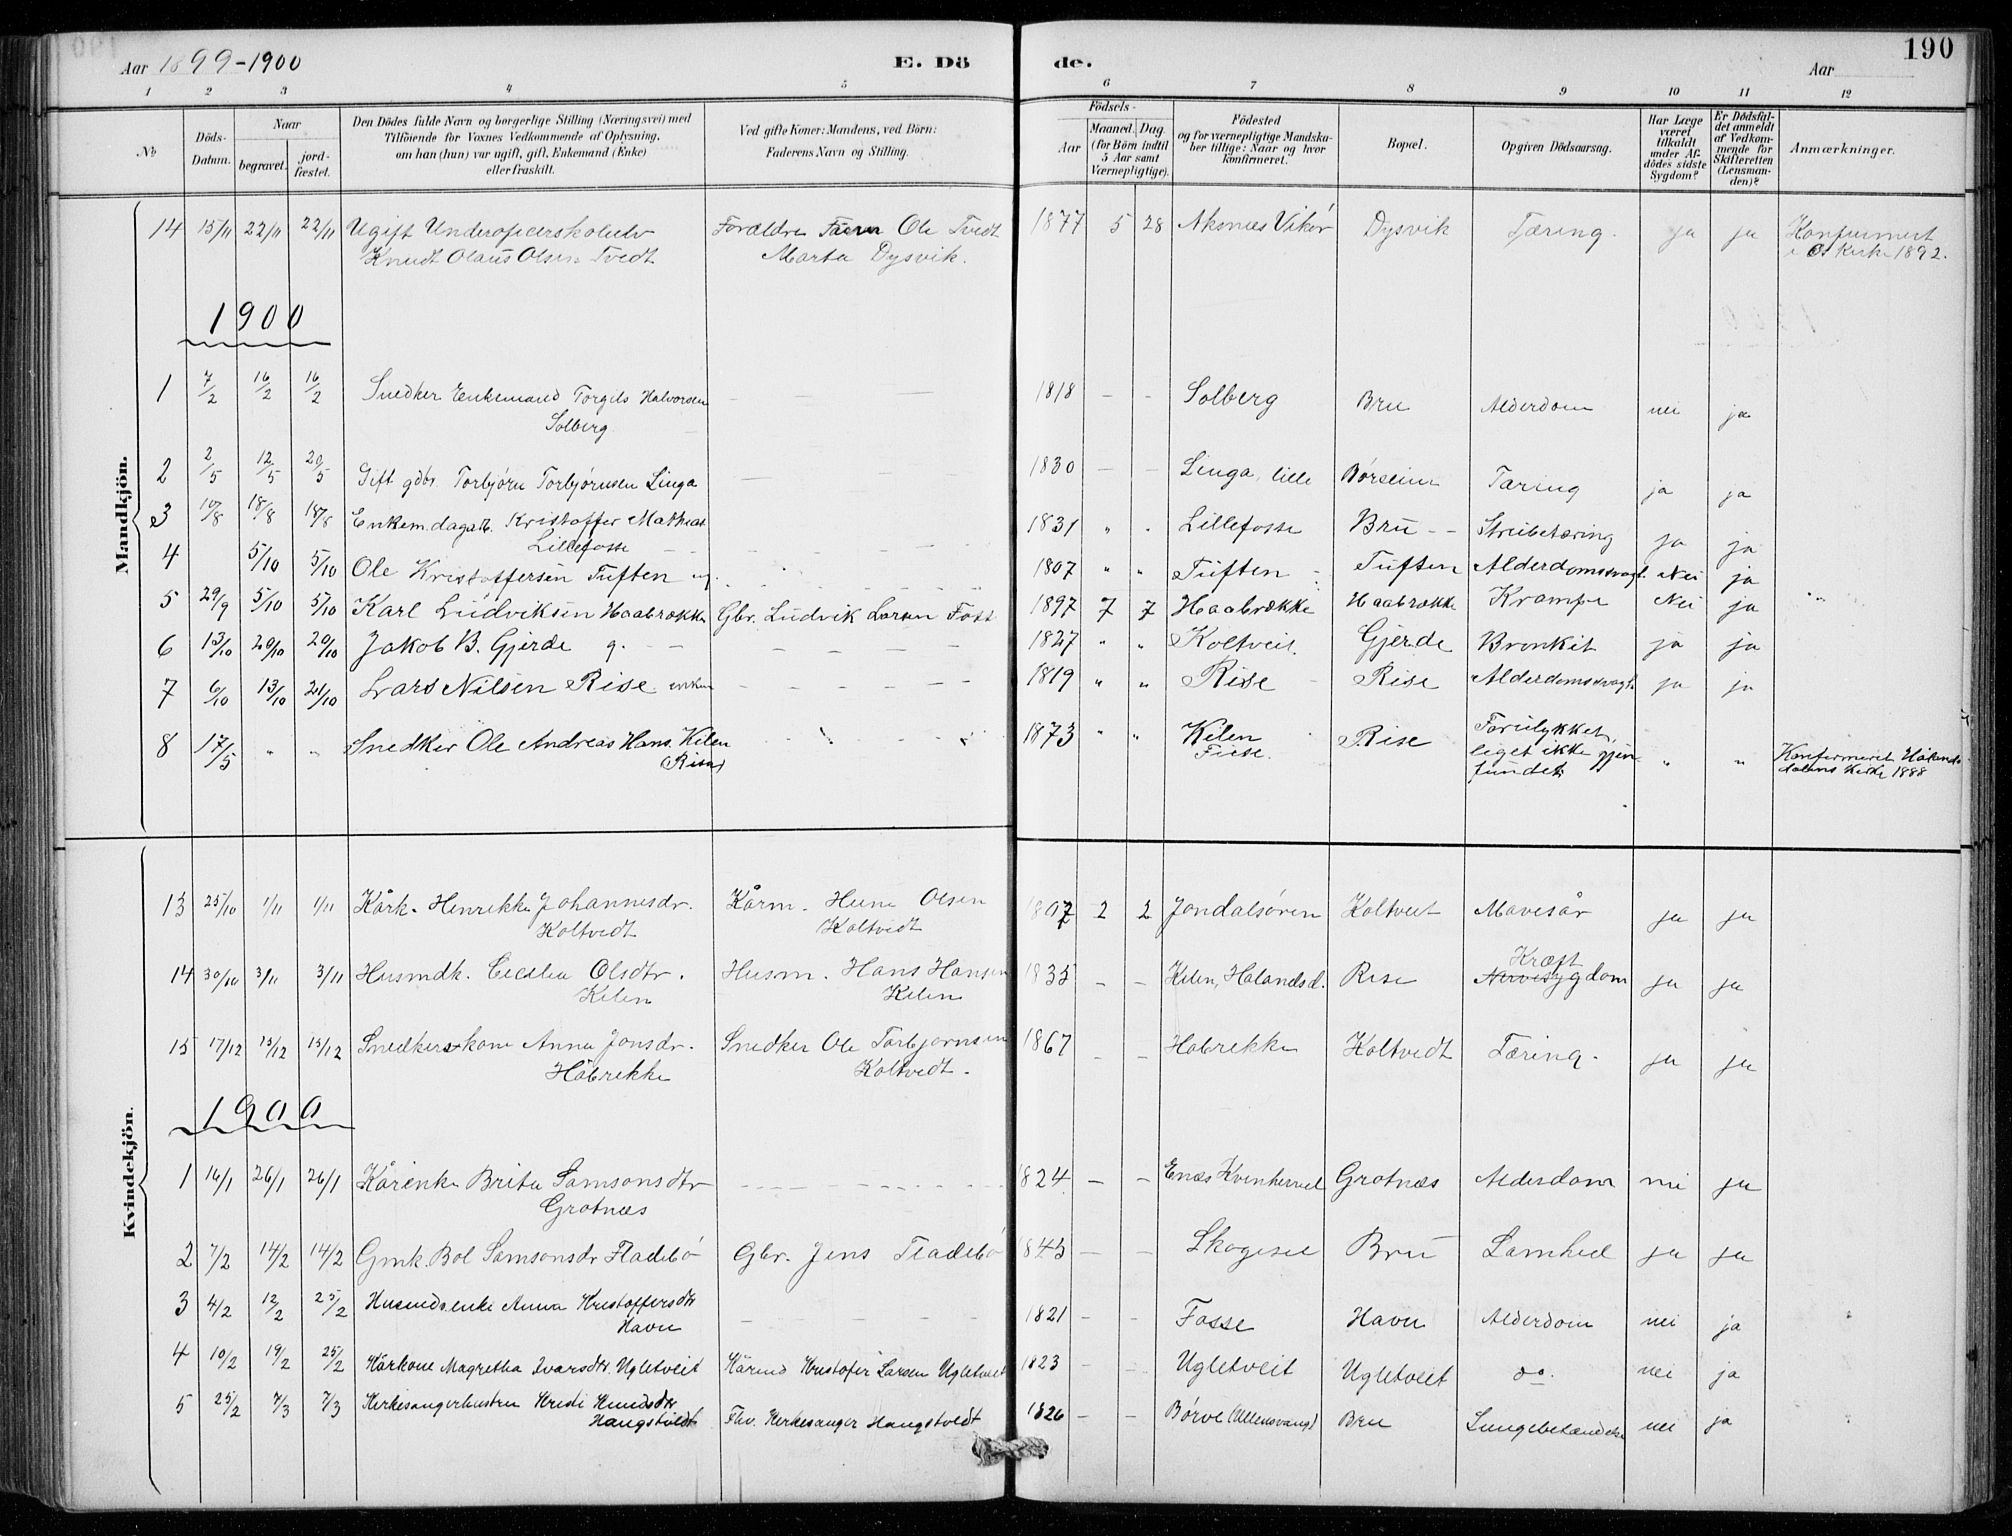 190
Aar 1899-1900
E. Dö de.
Aar
1 2 3 4 5 6 7 8 9 10 11 12
No
Döds-Datum.
Naar
begravet.
jord-fæstet.
Den Dödes fulde Navn og borgerlige Stilling (Næringsvei) med
Tilföiende for Voxnes Vedkommende af Oplysning,
om han (hun) var ugift, gift, Enkemand (Enke)
eller fraskilt.
Ved gifte Koner: Mandens, ved Börn:
Faderens Navn og Stilling.
Födsels-
Aar
Maaned. Dag.
(for Börn indtil
5 Aar samt
Værnepligtige).
Födested
og for værnepligtige Mandska-
ber tillige: Naar og hvor
konfirmeret.
Bopæl.
Opgiven Dödsaarsag.
Har Læge
været
tilkaldt
under Af-
dödes sidste
Sygdom?
Er Dödsfal-
det anmeldt
af Vedkom-
mende for
Skifteretten
(Lensman-
den)?
Anmærkninger.
Mandkjön.
14 15/11 22/11 22/11 Ugift Underoficerskoleelv Forældre Ole Tvedt 1877 5 28 Aksnes Vikör Dysvik Tæring. ja ja Konfirmert
Knudt Olaus Olsen Tvedt Marta Dysvik. i Kirke 1892.
1900
1 7/2 16/2 16/2 Snedker Enkemand Torgils Halvorsen 1818 - - Solberg Bru Alderdom nei ja
Solberg
2 2/5 12/5 20/5 Gift gdbr. Torbjørn Torbjørnsen Linga 1830 - - Linga, lille Børsheim Tæring ja ja
3 10/8 18/8 18/8 Enkem. dagarb. Kristoffer Mathias 1831 " . Lillefosse Bru Strubetæring ja ja
Lillefosse
4 5/10 5/10 Ole Kristoffersen Tuften ug. 1807 " " Tuften Tuften Alderdomssvagh. Nei ja
5 29/9 5/10 5/10 Karl Ludviksen Haabrække Gbr. Ludvik Larsen Foss 1897 7 7 Haabrække Haabrække Krampe Nei ja "
6 13/10 20/10 20/10 Jakob B. Gjerde g. 1827 " " Koltveit Gjerde Bronkit ja ja
7 6/10 13/10 21/10 Lars Nilsen Rise enkem 1819 " " Rise Rise Alderdomssvagh. ja ja
8 17/5 " " Snedker Ole Andreas Hans. Kilen 1873 " " Kilen Rise Forulykket,
(Risa) Fiese. liget ikke gjen- " " Konfirmeret Hålands
fundet. dalens Kirke 1888
Kvindekjön.
13 25/10 1/11 1/11 Kårk. Henrikke Johannesdr. Kårm. Hene Olsen 2 2 Jondalsøren Koltveit Mavesår ja ja
Koltvedt Koltvedt
14 30/10 3/11 3/11 Husmdk. Cecilia Olsdtr. Husm. Hans Hansen 1835 - - Kilen, Halandsd. Rise Kræftsygdom ja ja
Kilen Kilen
15 17/12 /12 /12 Snedkerskone Anna Jonsdr. Snedker Ole Torbjørnsen 1867 - - Habrekke Koltvedt Tæring. ja ja
Håbrekke Koltvedt.
1900
1 16/1 26/1 26/1 Kårenke Brita Samsonsdtr 1824 - - Enæs Kvinherred Grotnæs Alderdom nei ja
Grotnæs
2 7/2 14/2 14/2 Gmk. Bol Samsonsdr Fladebö Gbr. Jens Fladebö 1843 - - Bru Lamhed ja ja
3 4/2 12/2 25/2 Husmdsenke Anna Kristoffersdtr 1821 - - Fosse Havn Alderdom nei ja
Havn
4 10/2 19/2 25/2 Kårkone Magretha Ivarsdtr. Ugletveit Kårmd Kristofer Larsen Ugletveit 1823 - - Ugletveit Ugletveit do. nei ja
5 25/2 7/3 7/3 Kirkesangerhustru Kristi Knudsdtr 1826 - - Børve (Ullensvang) Bru Lungebetændelse nei ja
Haugstvedt Fhv. Kirkesanger Haugstvedt